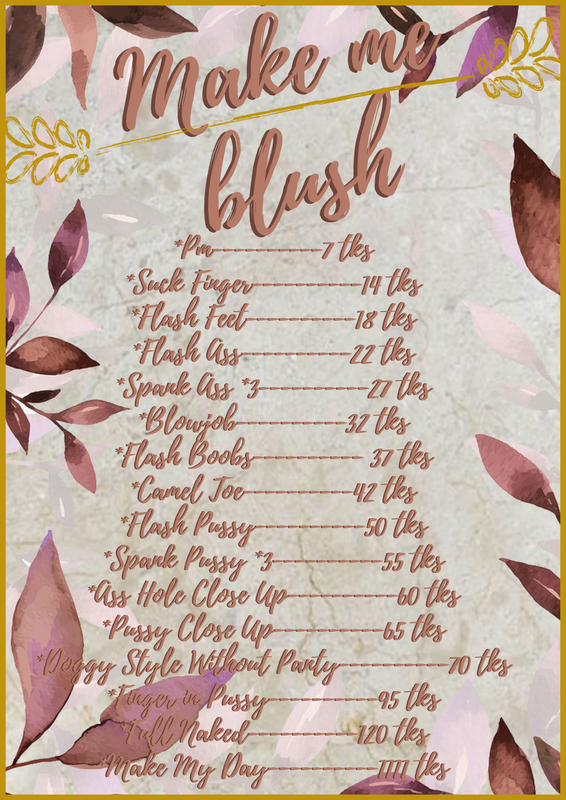 Make me
blush
*Pm-----------7 tks
*Suck Finger-----------14 tks
*Flash Feet-----------18 tks
*Flash Ass-----------22 tks
*Spank Ass *3-----------27 tks
*Blowjob-----------32 tks
*Flash Boobs----------- 37 tks
*Camel Toe-----------42 tks
*Flash Pussy-----------50 tks
*Spank Pussy *3-----------55 tks
*Ass Hole Close Up-----------60 tks
*Pussy Close Up-----------65 tks
*Doggy Style Without Panty-----------70 tks
*Finger in Pussy-----------95 tks
*Full Naked-----------120 tks
*Make My Day-----------1111 tks